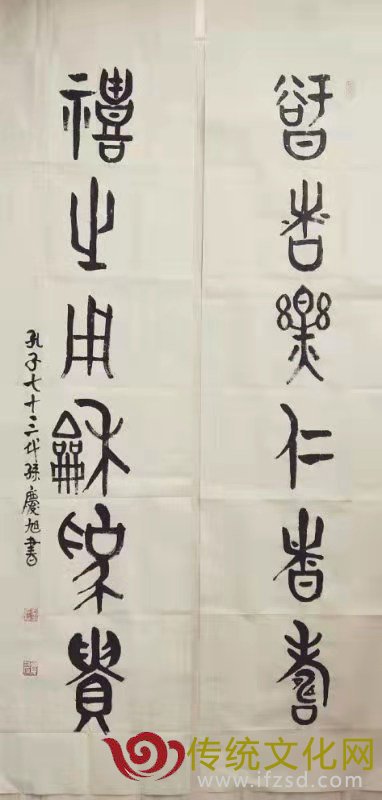 智者樂仁者壽
禮之用龢為貴
孔子七十三代孫慶旭書
传统文化网
www.ifzsd.com